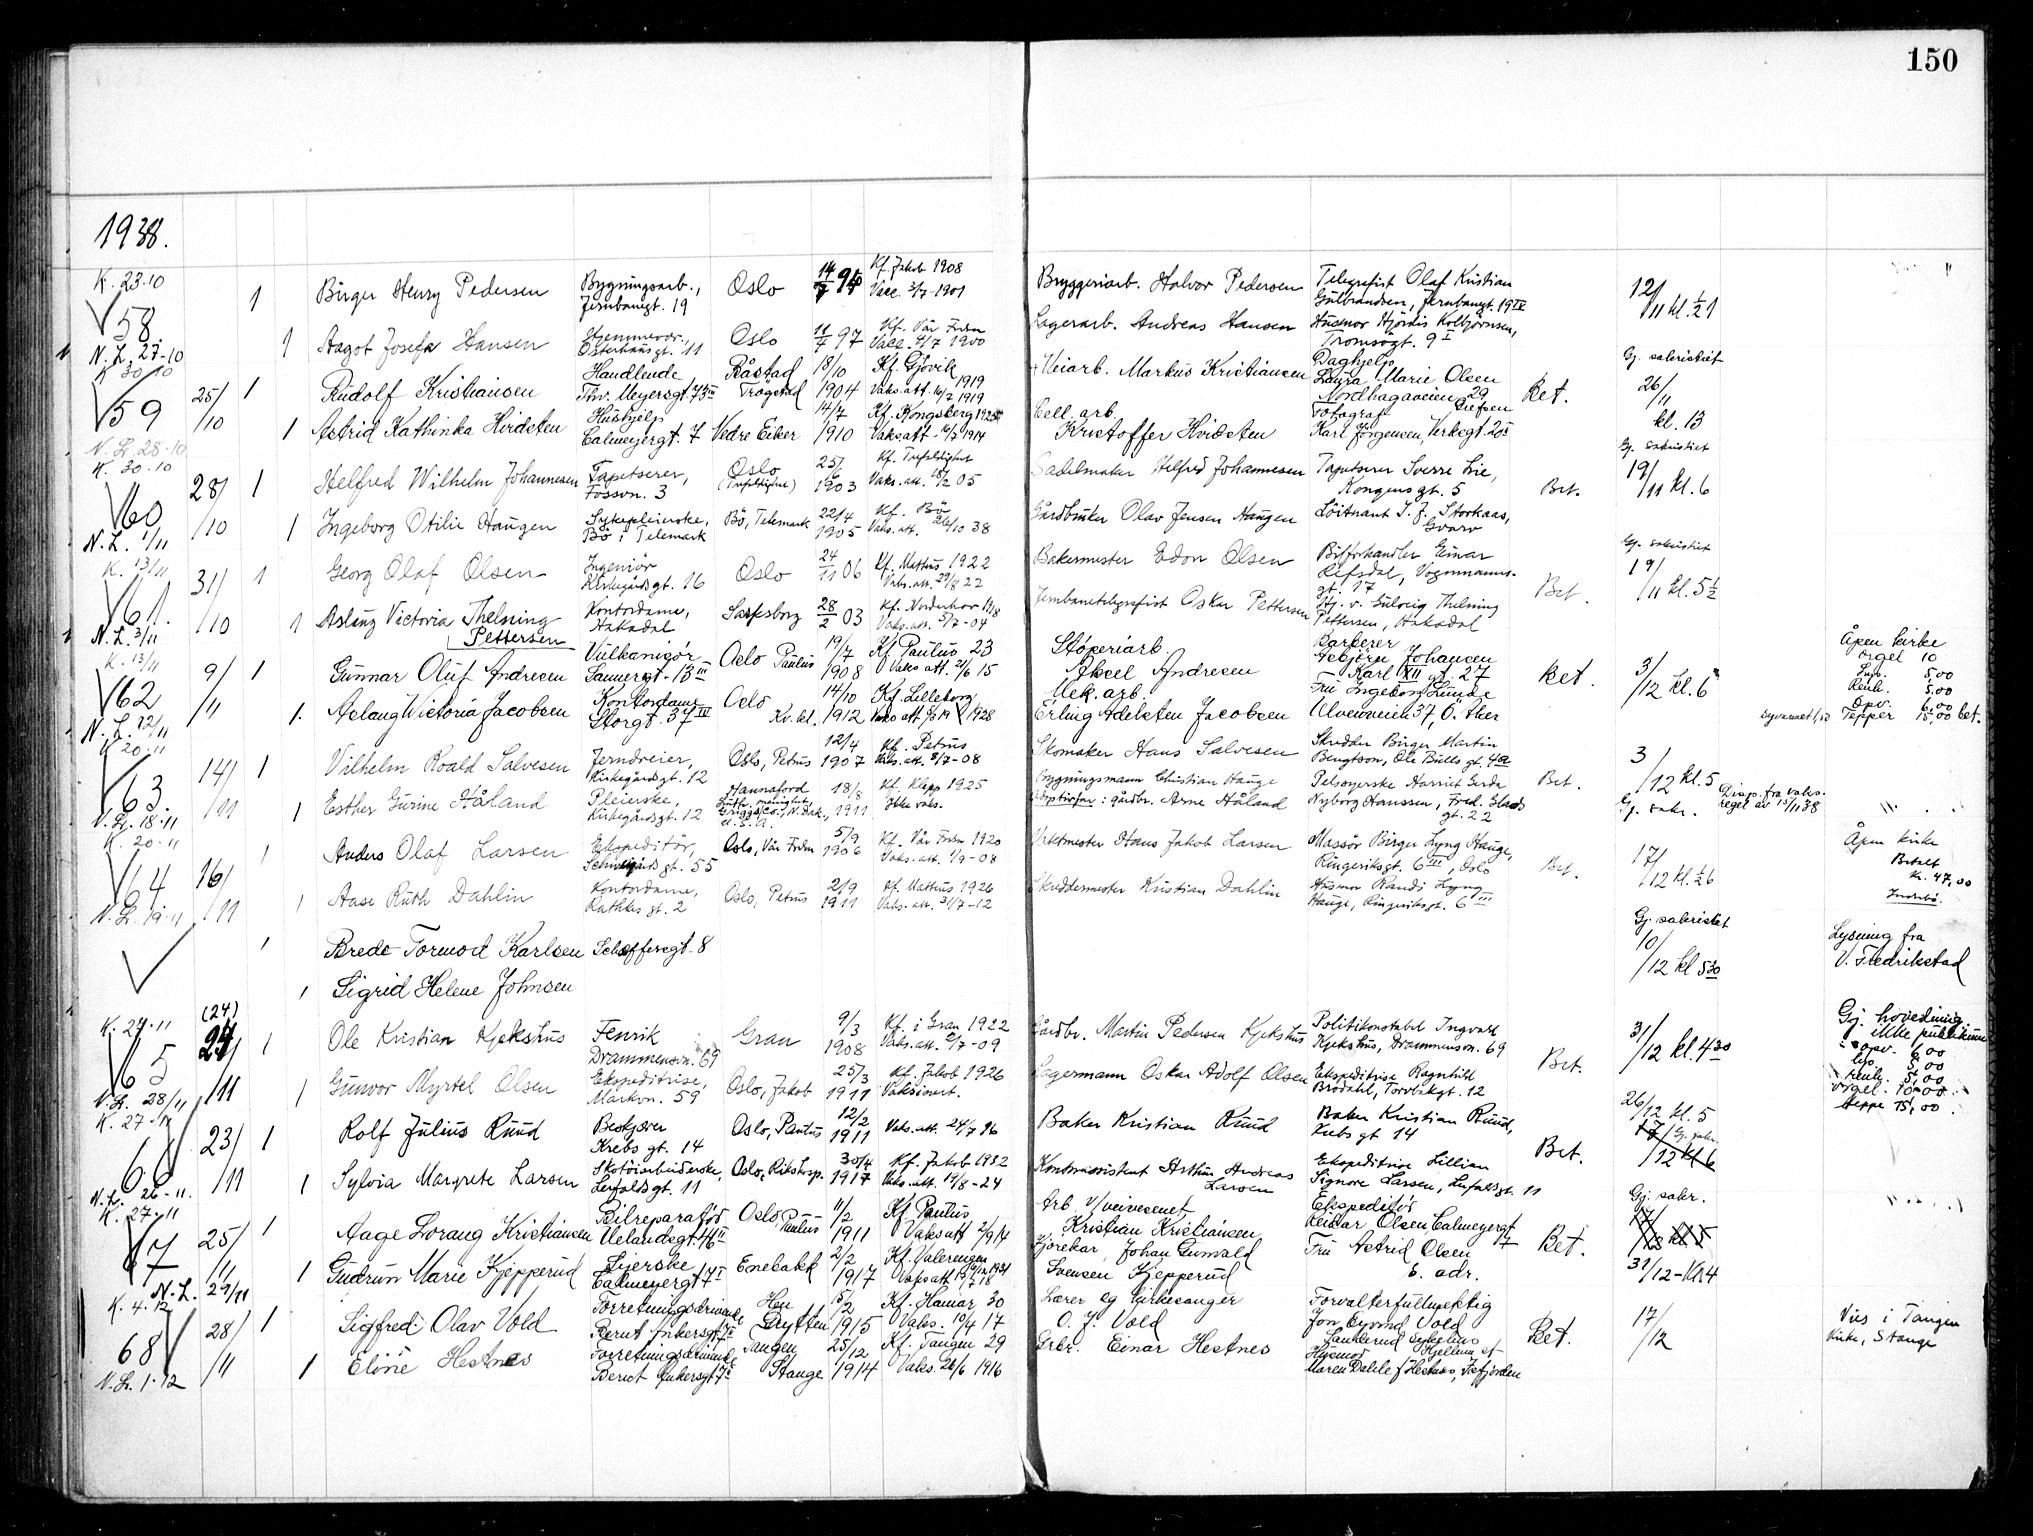 150
1938.
K. 23.10
58
N. L. 27-10
1 Birger Henry Pedersen Bygningsarb., Jernbanegt. 19 Oslo 14/7 95 Kf. Jakob 1908 Vacc. 3/7-1901 Bryggeriarb. Halvor Pedersen Telegrafist Olaf Kristian Gulbrandsen, Jernbanegt. 19 IV 12/11 kl. ½1
1 Aagot Josefa Hansen Hjemmevær. Osterhausgt. 11 Oslo 11/7 97 Kf. Vår Frelser Vacc. 4/7 1900 Lagerarb. Andreas Hansen Husmor Hjördis Kolbjörnsen, Tromsögt. 9 I
K 30/10
59
N. L. 28.10
25/10 1 Rudolf Kristiansen Handlende Thv. Meyersgt. 73 III Båstad Trögstad 18/10 1904 Kf. Gjövik 1919 Vaks. att. 1919 Veiarb. Markus Kristiansen Daghjelp Laura Marie Olsen Nordhagaveien 29 Grefsen Bet. Gj. sakristiet 26/11 kl. 13
1 Astrid Kathinka Hvidsten Hushjelp Calmeyergt. 7 Nedre Eiker 14/7 1910 Kf. Kongsberg 1925 Vaks. att. 1914 Cell. arb. Kristoffer Hvidsten Fotograf Karl Jörgensen, Verksgt. 20
K. 30.10
60
N. L. 1/11
28/10 1 Helfred Wilhelm Johannesen Tapetserer, Fossvn. 3 Oslo (Trefoldighet) 25/6 1903 Kf. Trefoldighet Vaks. att. 05 Sadelmaker Helfred Johannesen Tapetserer Sverre Lie, Kongensgt. 5 Bet. Gj. sakristiet 19/11 kl. 6
1 Ingeborg Otilie Haugen Sykepleierske, Bö i Telemark Bö, Telemark 22/4 1905 Kf. Bö Vaks. att. 26/10 38 Gårdbruker Olav Jensen Haugen Löitnant Storkaas, Gvarv
K. 13/11
61.
N. L. 3/11
31/10 1 Georg Olaf Olsen Ingeniör Kirkegårdsgt. 16 Oslo 24/11 06 Kf. Mattus 1922 Vaks. att. 29/8 22 Bakermester Edon Olsen Bilforhandler Einar Refsdal, Vognmannsgt. 17 Bet. Gj. sakristiet 19/11 kl. 5½
1 Aslaug Victoria Thelning Pettersen Kontordame, Hakadal Sarpsborg 28/2 03 Kf. Norderhov Vaks. att. 5/7-04 Jernbanetelegrafist Oskar Pettersen Hj. v. Solveig Thelning Pettersen, Hakadal
K. 13/11
62
N. L. 12/11
9/11 1 Gunnar Oluf Andresen Vulkanisör Sannergt. 13 III Oslo Paulus 19/7 1908 Kf Paulus 23 Vaks att. 21/6 15 Støperiarb. Aksel Andresen Barberer Asbjørn Johansen Karl XII gt. 27 Bet. 3/12 kl. 6 Åpen kirke orgel 10 Lys. 5,00 Renh. 5,00 Opv. 6,00 Tepper 15,00 bet.
1. Aslaug Victoria Jacobsen Kontordame Storgt. 37 IV Oslo Kv. kl. 14/10 1912 Kf. Lilleborg 1928 Mek. arb. Erling Adelsten Jacobsen Fru Ingeborg Lunde Ulvenveien 37, Ö. Aker
K 20.11
63.
N. L. 18.11
14/11 1 Vilhelm Roald Salvesen Jerndreier, Kirkegårdsgt. 12 Oslo, Petrus 12/4 1907 Kf. Petrus Vaks. att. 8/7-08 Skomaker Hans Salvesen Skredder Birger Martin Bengtson, Ole Bulls gt. 42 Bet. 3/12 kl. 5
1 Esther Gurine Håland Pleierske, Kirkegårdsgt. 12 Hannaford luth. menighet Griggs Co., N. Dak., U.S.A. 18/8 1911 Kf. Klepp 1925 Ikke vaks. Bygningsmann Christian Hauge Adoptivfar: gårdbr. Arne Håland Pelssyerske Harriet Gerda Nyborg Hanssen, Fred. Glads gt. 22 Gj. sakr. Disp. fra vaks. regel av 15/11 38
K. 20.11
64
N. L. 19.11
16/11 1 Anders Olaf Larsen Ekspeditör, Schweigårdsgt. 55 Oslo, Vår Frelser 5/9 1906 Kf. Vår Frelser 1920 Vaks. att. 1/9-08 Vaktmester Hans Jakob Larsen Massör Birger Lyng Hauge, Ringeriksgt. 6 III, Oslo Bet. 17/12 kl. ½6 Åpen kirke Betalt kr. 47,00
1 Aase Ruth Dahlin Kontordame, Rathkes gt. 2 Oslo, Petrus 2/9 1911 Kf. Mattus 1926 Vaks. att. 31/7-12 Skreddermester Kristian Dahlin Husmor Randi Lyng Hauge, Ringeriksgt. 6 III
1 Brede Tormod Karlsen Schøffersgt. 8 Gj. sakristiet 10/12 kl 5 30 Lysning fra V. Fredrikstad
1 Sigrid Helene Johnsen
K. 27.11
65
N. L. 28/11
(24) 24/11 1 Ole Kristian Kjekshus Fenrik Drammensvn. 69 Gran 9/3 1908 Kf. i Gran 1922 Vaks. att. 2/7-09 Gårdbr. Martin Pedersen Kjekshus Politikonstabel Ingvald Kjekshus, Drammensvn. 69 Bet. 3/12 kl. 4 30 Gj. hovedinng. ikke publikum opv. 6,00 Lys. 5,00 Renh. 5,00 orgel. 10,00 teppe 15,00.
1 Gunvor Myrtel Olsen Ekspeditrise, Markvn. 59 Oslo, Jakob 25/3 1911 Kf. Jakob 1926 Vaksinert. Lagermann Oskar Adolf Olsen Ekspeditrise Ragnhild Brodahl, Torvbakgt. 12
K. 27-11
66
N. L. 26-11.
23/11 1 Rolf Julius Ruud Bestyrer Krebs gt. 14 Oslo, Paulus 12/2 1911 Vaks. att. 24/7 16 Baker Kristian Ruud Baker Kristian Ruud, Krebs gt 14 Bet. 26/12 kl. 5 17/12 kl 6 Gj. sakr.
1 Sylvia Margrete Larsen Skotöiarbeiderske, Lerfaldsgt. 11 Oslo, Rikshosp. 30/4 1917 Kf. Jakob 1932 Vaks. att. 19/8-24 Kontorassistent Arthur Andreas Larsen Ekspeditrise Lillian Signore Larsen, Lerfaldsgt. 11
K. 27-11
67
N. L. 29/11
25/11 1 Aage Lorang Kristiansen Bilreparatör Uelandsgt. 46 II Oslo, Paulus 11/2 1911 Kf Paulus Vaks att 2/9 14 Arb. v/veivesenet Kristian Kristiansen Ekspeditör Reidar Olsen, Calmeyergt 7 Bet. Gj. sakr. 31/12-Kl 4
1 Gudrun Marie Kjepperud Sierske Calmeyergt 7 I Enebakk 2/2 1917 Kf. Valerengen 1931 Vaks att Kjörekar Johan Gunvald Svensen Kjepperud Fru Astrid Olsen s. adr.
K. 4.12
68
N. L. 1.12
28/11 1 Sigfred Olav Vold Forretningsdrivende Bernt Ankersgt 7 I Hen Grytten 5/2 1915 Kf. Hamar 30 Vaks. 10/4 17 Lærer og kirkesanger O. J. Vold Forvalterfullmektig Jon Eyvind Vold Sanderud sykehus Bet. 17/12 Vies i Tangen kirke, Stange
1 Eline Hestnes Forretningsdrivende Bernt Ankersgt 7 I Tangen Stange 25/12 1914 Kf. Tangen 29 Vaks. 26/6 1916 Grbr. Einar Hestnes Husmor Maren Dahle f. Hestnes, Isfjorden